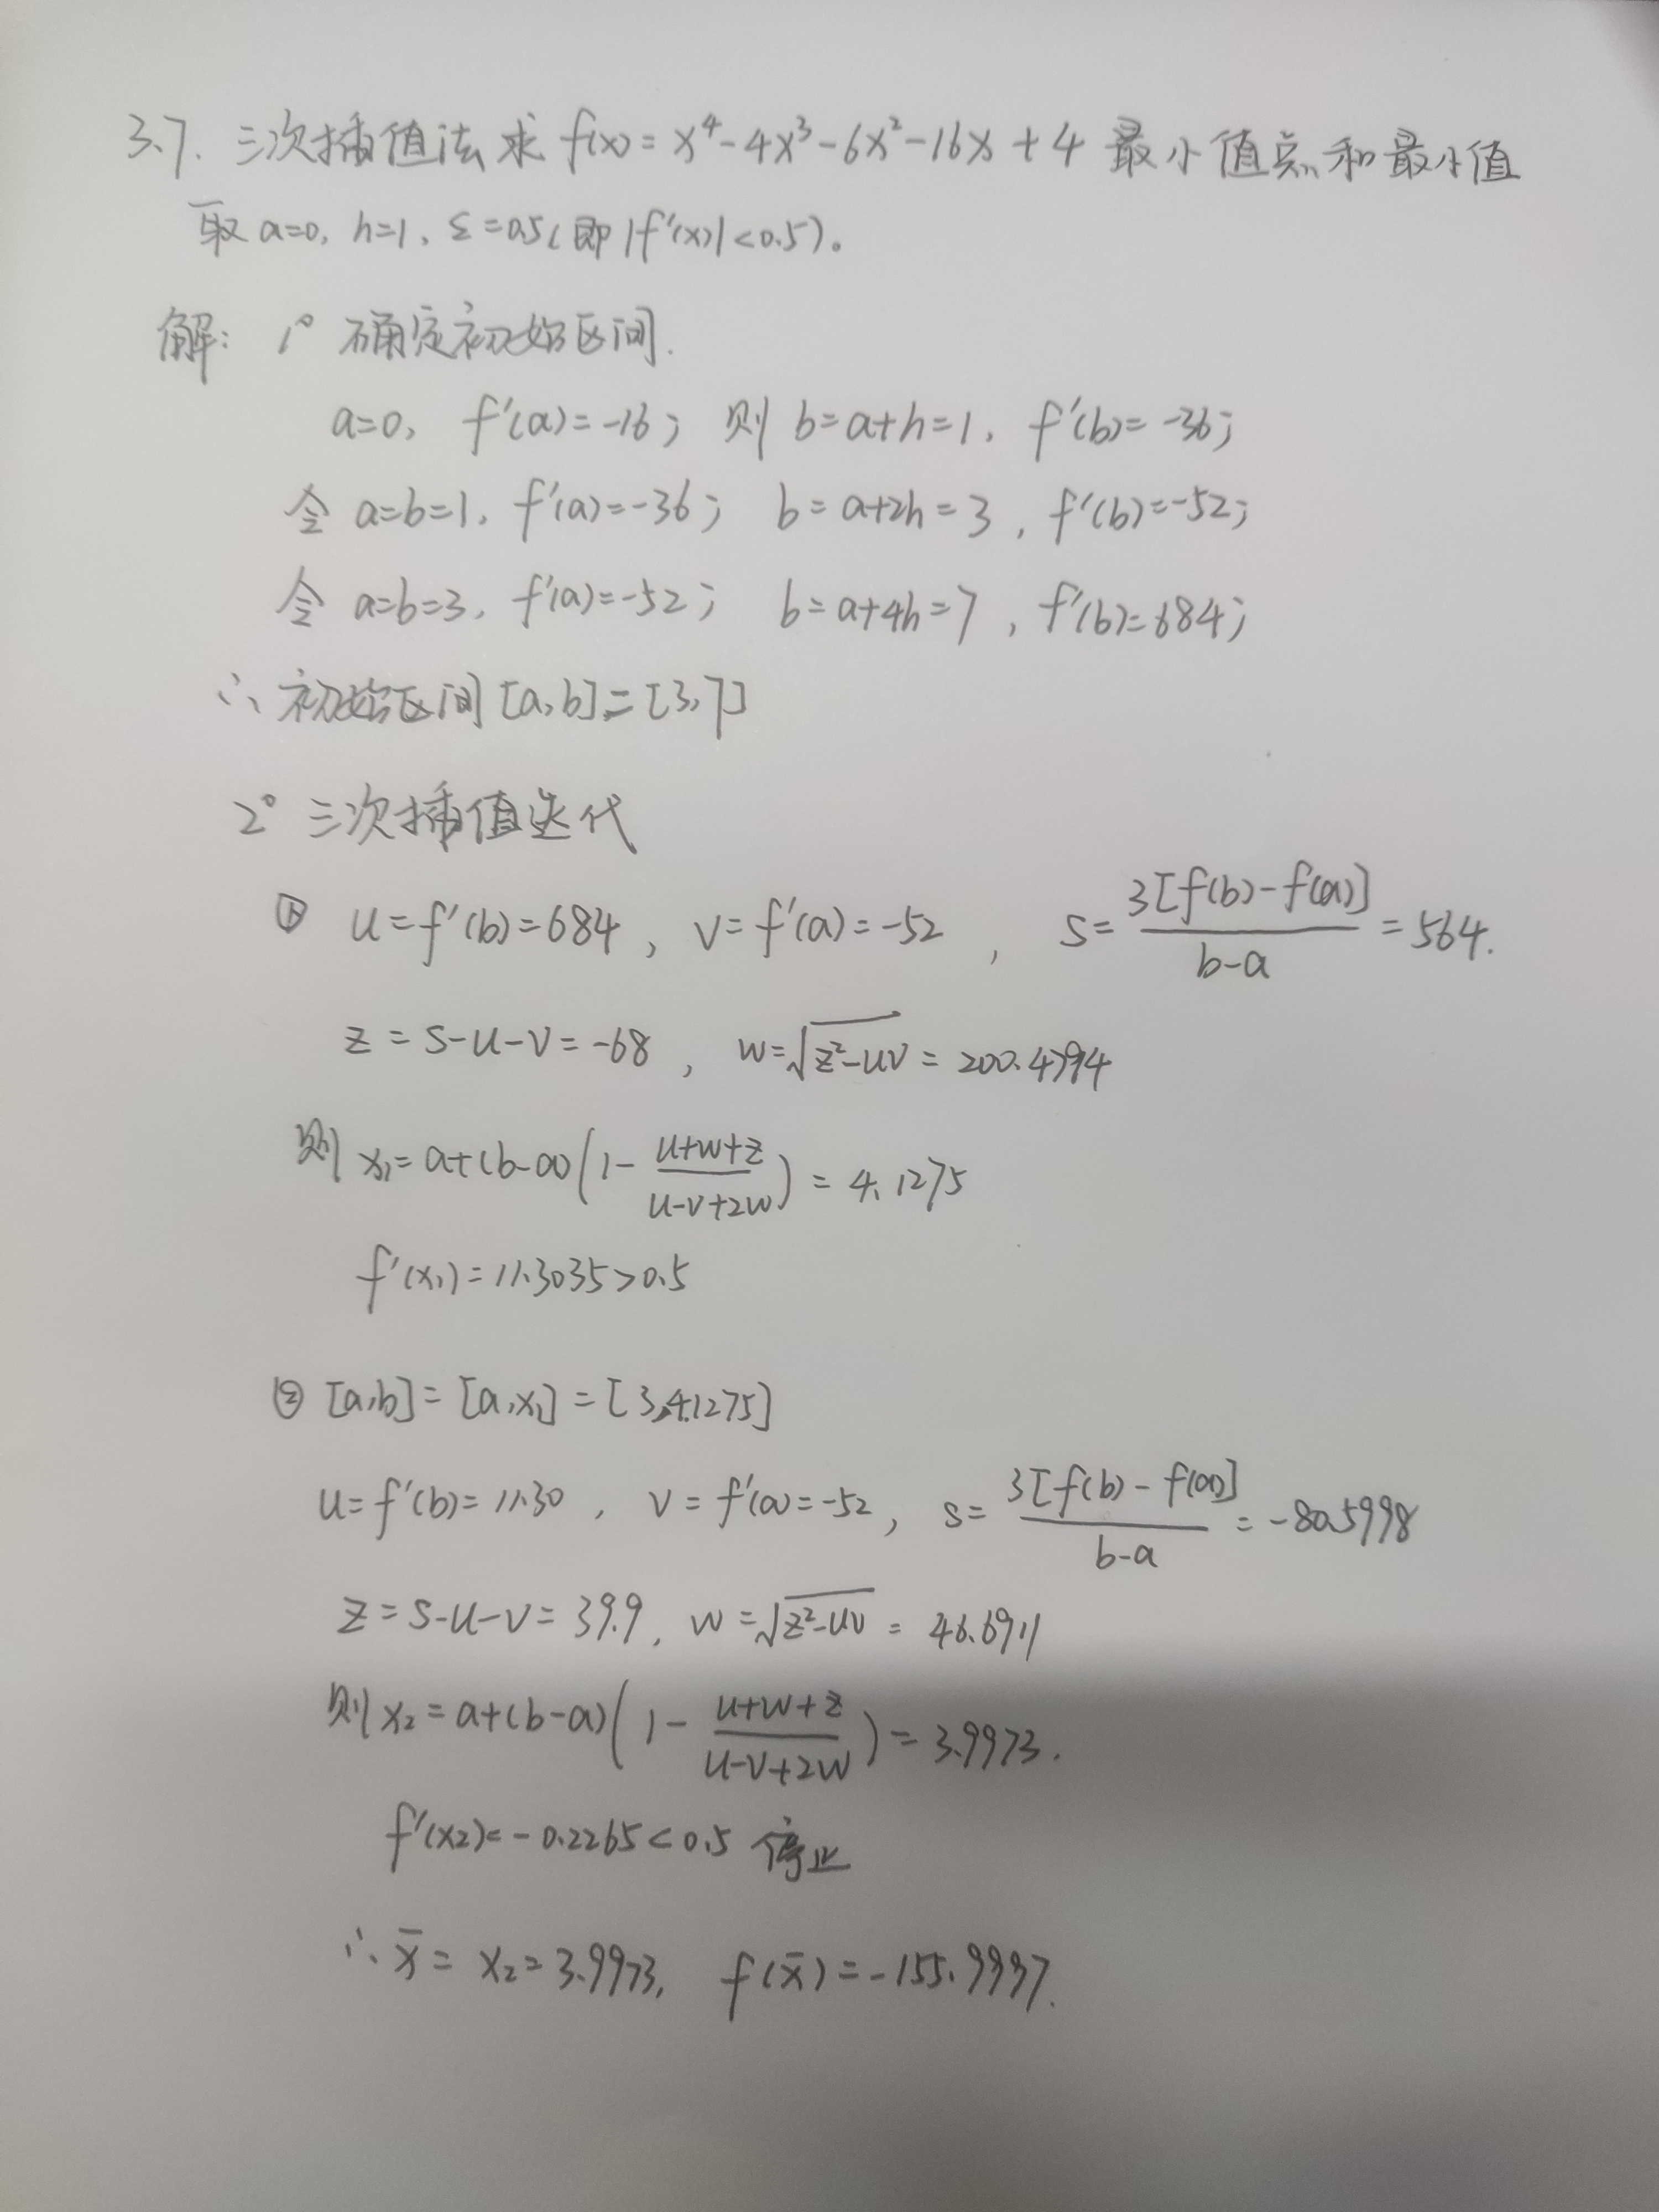 3.7. 三次插值法求 f(x) = x⁴-4x³-6x²-16x+4 最小值点和最小值
取 a=0, h=1, ε=0.5(即|f'(x)|<0.5)。
解: 1° 确定初始区间.
a=0, f'(a)=-16; 则 b=a+h=1, f'(b)=-36;
令 a=b=1, f'(a)=-36; b=a+2h=3, f'(b)=-52;
令 a=b=3, f'(a)=-52; b=a+4h=7, f'(b)=684;
∴ 初始区间[a,b]=[3,7]
2° 三次插值迭代
① u=f'(b)=684, v=f'(a)=-52, s=3[f(b)-f(a)]/(b-a)=564.
z=s-u-v=-68, w=√(z²-uv)=200.4794
则 x₁=a+(b-a)(1-(u+w+z)/(u-v+2w))=4.1275
f'(x₁)=11.3035>0.5
② [a,b]=[a,x₁]=[3,4.1275]
u=f'(b)=11.30, v=f'(a)=-52, s=3[f(b)-f(a)]/(b-a)=-80.5998
z=s-u-v=39.9, w=√(z²-uv)=46.6911
则 x₂=a+(b-a)(1-(u+w+z)/(u-v+2w))=3.9973.
f'(x₂)=-0.2265<0.5 停止
∴ x̄=x₂=3.9973, f(x̄)=-155.9997.